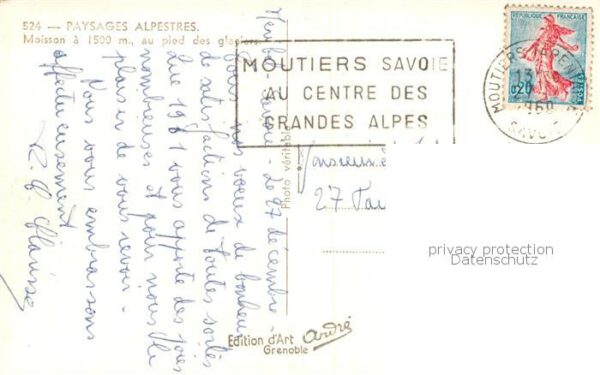 524 — PAYSAGES ALPESTRES.
Moisson à 1500 m., au pied des glaciers
MOUTIERS SAVOIE
AU CENTRE DES
GRANDES ALPES
REPUBLIQUE FRANÇAISE
0,20
POSTES
MOUTIERS TARENT
13
1960
SAVOIE
Savoie - le 27 décembre -
nos vœux de bonheur,
de satisfactions de toutes sortes
Que 1961 vous apporte des joies
nombreuses et pour nous le
plaisir de vous revoir.
Nous vous embrassons
affectueusement
Photo véritable
Monsieur
27
Edition d'Art André
Grenoble
privacy protection
Datenschutz